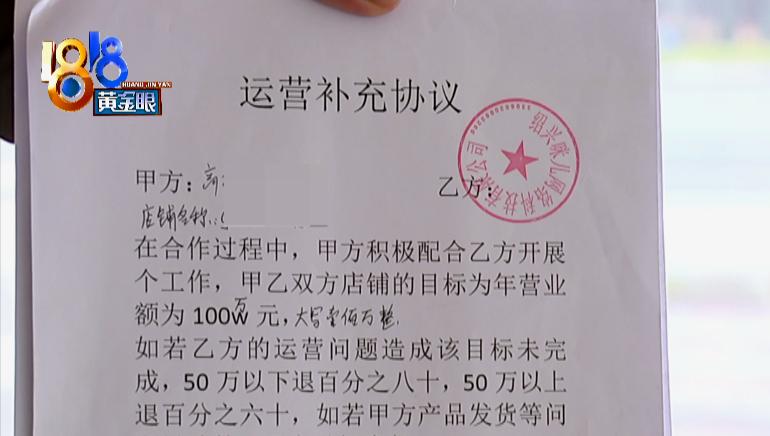 1818
HUANG JIN YAN
黄金眼
运营补充协议
绍兴咪儿网络科技有限公司
甲方： 乙方：
店铺名称：
在合作过程中，甲方积极配合乙方开展
个工作，甲乙双方店铺的目标为年营业
额为 100w万元，大写壹佰万整
如若乙方的运营问题造成该目标未完
成，50 万以下退百分之八十，50 万以上
退百分之六十，如若甲方产品发货等问